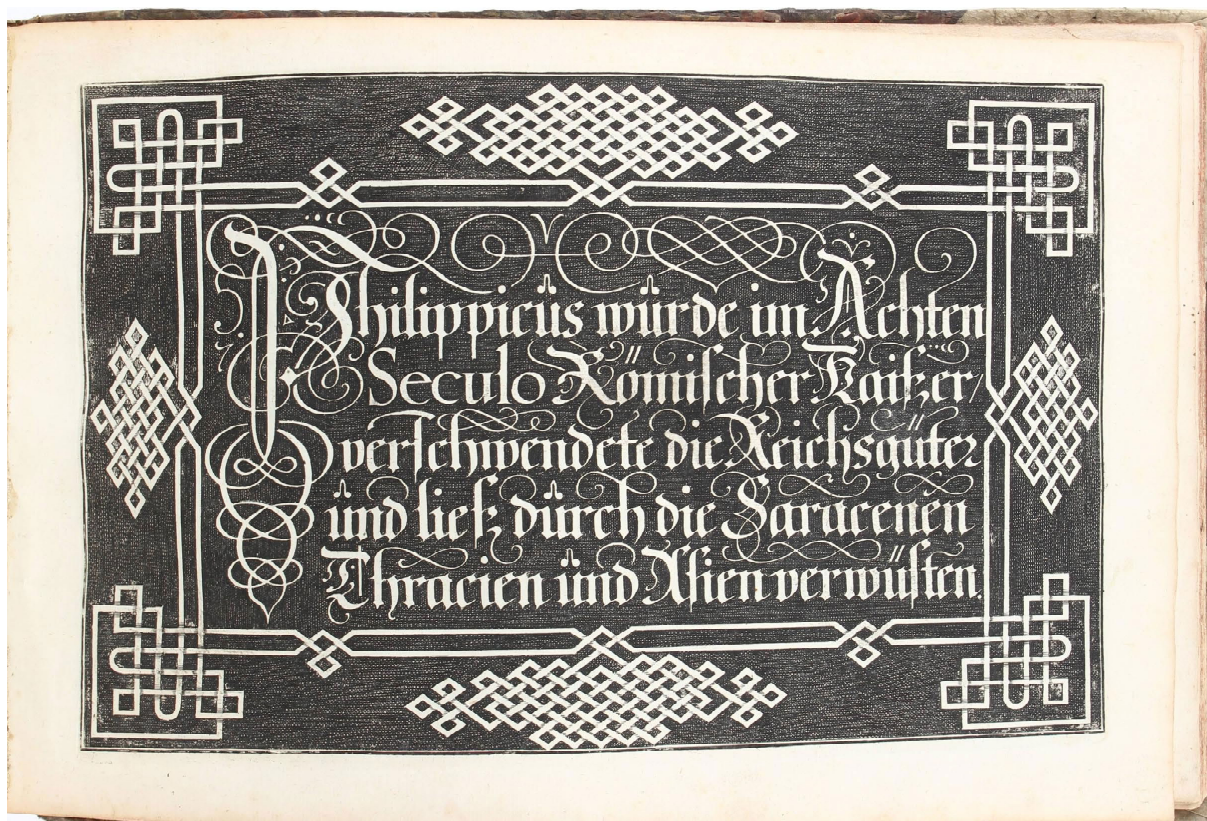 Philippicus wurde im Achten
Seculo Römischer Kaiszer/
verschwendete die Reichsgüter
und liesz durch die Saracenen
Thracien und Asien verwüsten.